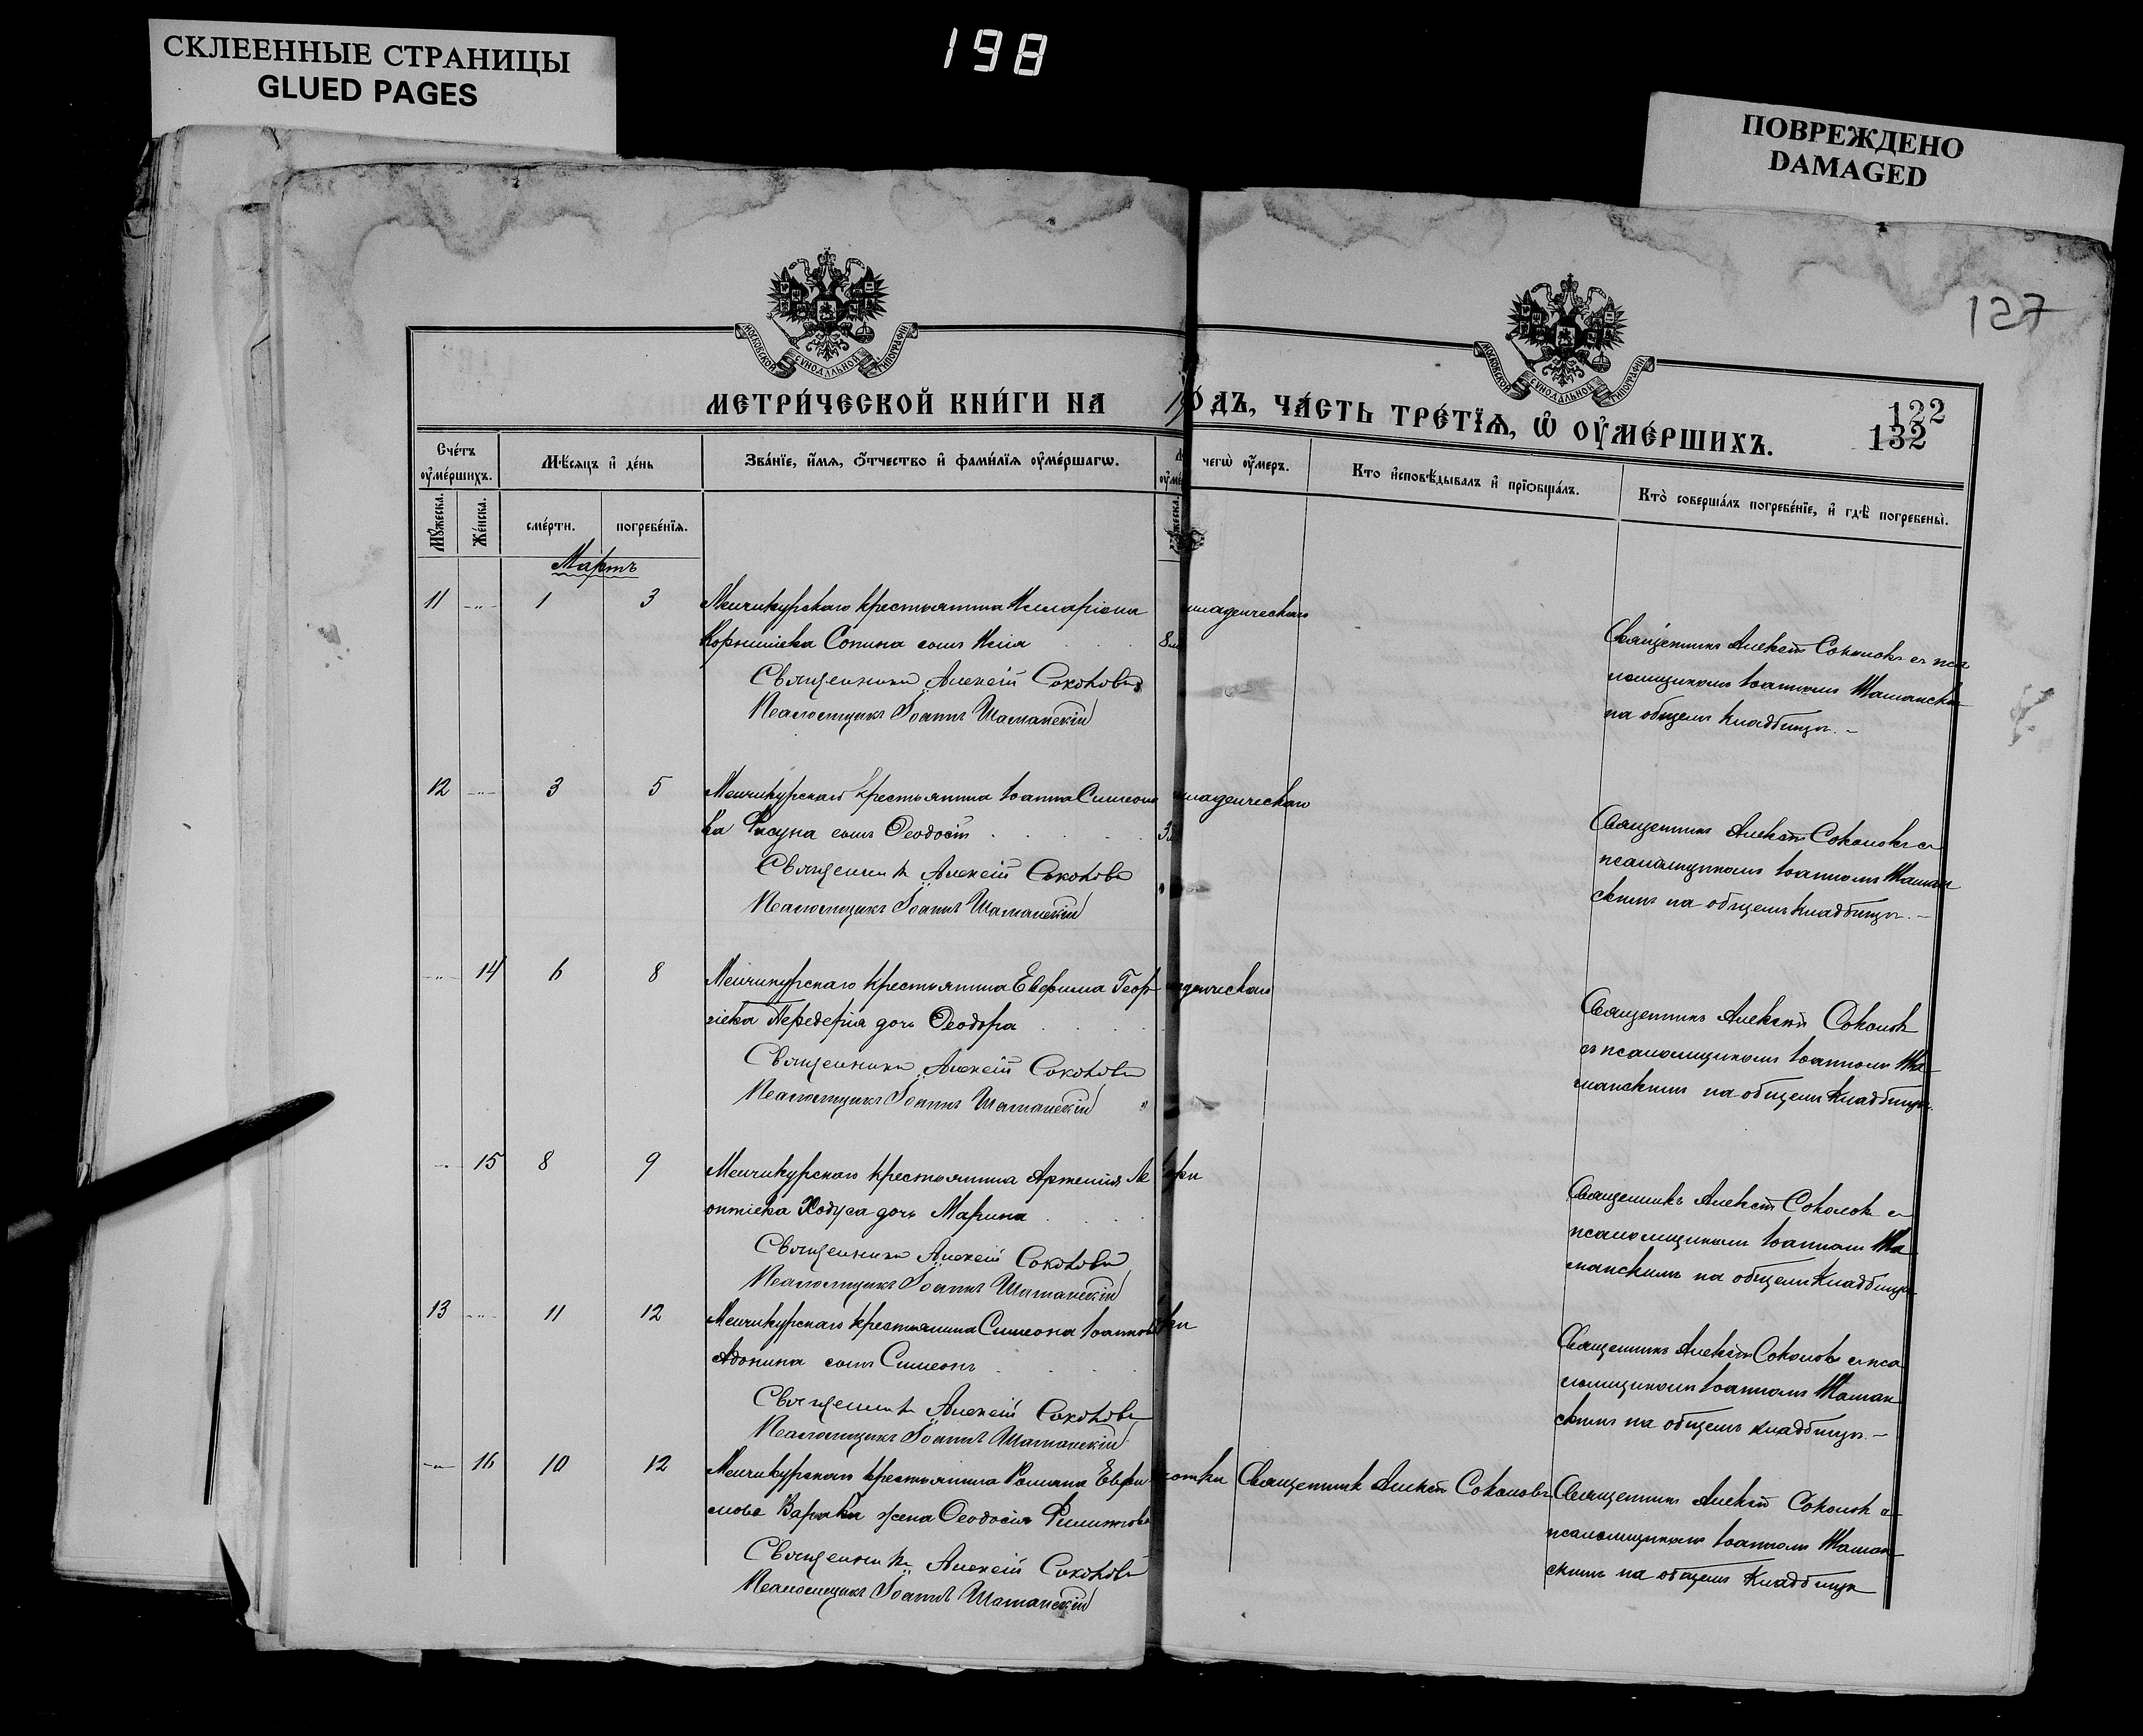 СКЛЕЕННЫЕ СТРАНИЦЫ
GLUED PAGES
198
ПОВРЕЖДЕНО
DAMAGED
127
МОСКОВСКОЙ СѴНОДАЛЬНОЙ ТИПОГРАФІИ
МОСКОВСКОЙ СѴНОДАЛЬНОЙ ТИПОГРАФІИ
МЕТРИ́ЧЕСКОЙ КНИ́ГИ НА
О́ДЪ, ЧА́СТЬ ТРЕ́ТЇѦ, Ѡ҆ ОУ҆МЕ́РШИХЪ.
122
132
Сче́тъ оу҆ме́ршихъ.
Мѣ́сяцъ и҆ де́нь
Зва́нїе, и҆́мя, о҆́тчество и҆ фами́лїя оу҆ме́ршагѡ.
чегѡ̀ оу҆́меръ.
Кто̀ и҆сповѣ́дывалъ и҆ прїѡбща́лъ.
Кто̀ соверша́лъ погребе́нїе, и҆ гдѣ̀ погребены̀.
Мꙋ́жеска.
Же́нска.
сме́рти.
погребе́нїя.
Мартъ
11 1 3 Менчикурскаго крестьянина Иларіона
младенческаго
Корниліева Сопина сынъ Илія 8
Священникъ Алексій Соколовъ
Псаломщикъ Іоаннъ Шаманскій
Священникъ Алексій Соколовъ съ пса
ломщикомъ Іоанномъ Шаманскимъ
на общемъ кладбищѣ.
12 3 5 Менчикурскаго крестьянина Іоанна Симеоно
младенческаго
ва сынъ Ѳеодосій 3
Священникъ Алексій Соколовъ
Псаломщикъ Іоаннъ Шаманскій
Священникъ Алексій Соколовъ съ
псаломщикомъ Іоанномъ Шаман
скимъ на общемъ кладбищѣ.
14 6 8 Менчикурскаго крестьянина Евфима Геор
гіева Передерія дочь Ѳеодора
Священникъ Алексій Соколовъ
Псаломщикъ Іоаннъ Шаманскій
Священникъ Алексій Соколовъ
съ псаломщикомъ Іоанномъ Ша
манскимъ на общемъ кладбищѣ.
15 8 9 Менчикурскаго крестьянина Артемія Ле
онтіева Ходуса дочь Марина
Священникъ Алексій Соколовъ
Псаломщикъ Іоаннъ Шаманскій
Священникъ Алексій Соколовъ съ
псаломщикомъ Іоанномъ Ша
манскимъ на общемъ кладбищѣ
13 11 12 Менчикурскаго крестьянина Симеона Іоаннова
Адонина сынъ Симеонъ
Священникъ Алексій Соколовъ
Псаломщикъ Іоаннъ Шаманскій
Священникъ Алексій Соколовъ съ пса
ломщикомъ Іоанномъ Шаман
скимъ на общемъ кладбищѣ.
16 10 12 Менчикурскаго крестьянина Романа Евфи
мова жена Ѳеодосія
Священникъ Алексій Соколовъ
Псаломщикъ Іоаннъ Шаманскій
Священникъ Алексій Соколовъ
Священникъ Алексій Соколовъ съ
псаломщикомъ Іоанномъ Шаман
скимъ на общемъ кладбищѣ